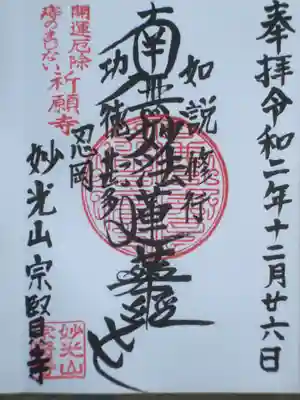 奉拝令和二年十二月廿六日
如説修行
南無妙法蓮華経
功徳甚多
忍岡
妙光山宗賢寺
開運厄除
祈願寺
妙光山